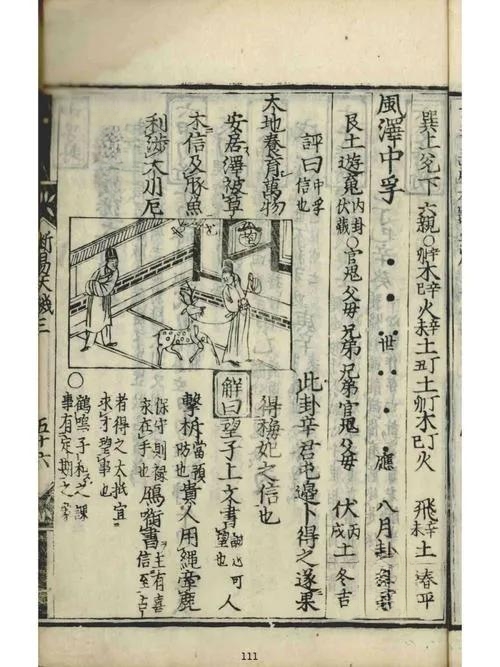 巽上兌下 六親〇辛卯木辛巳火辛未土丁丑土丁卯木丁巳火 飛辛未土 春平
風澤中孚 世 應 八月卦
艮土遊䰟內卦伏藏 官䰟父毋兄弟兄弟官䰟父毋 伏丙戌土 冬吉
評曰中孚信也
天地養育萬物
安居澤被草
木信及豚魚
利涉大川厄
此卦辛君屯邊卜得之遂果
得梅妃之信也
解曰望子上文書 望也 可人
擊柝當預防也貴人用繩牽鹿
保守則祿求在手也鴈啣書主有喜信至
者得之大抵宜
求才望事也
〇鶴鳴子和之課
事有定期之
斷易天機三
五十六
111